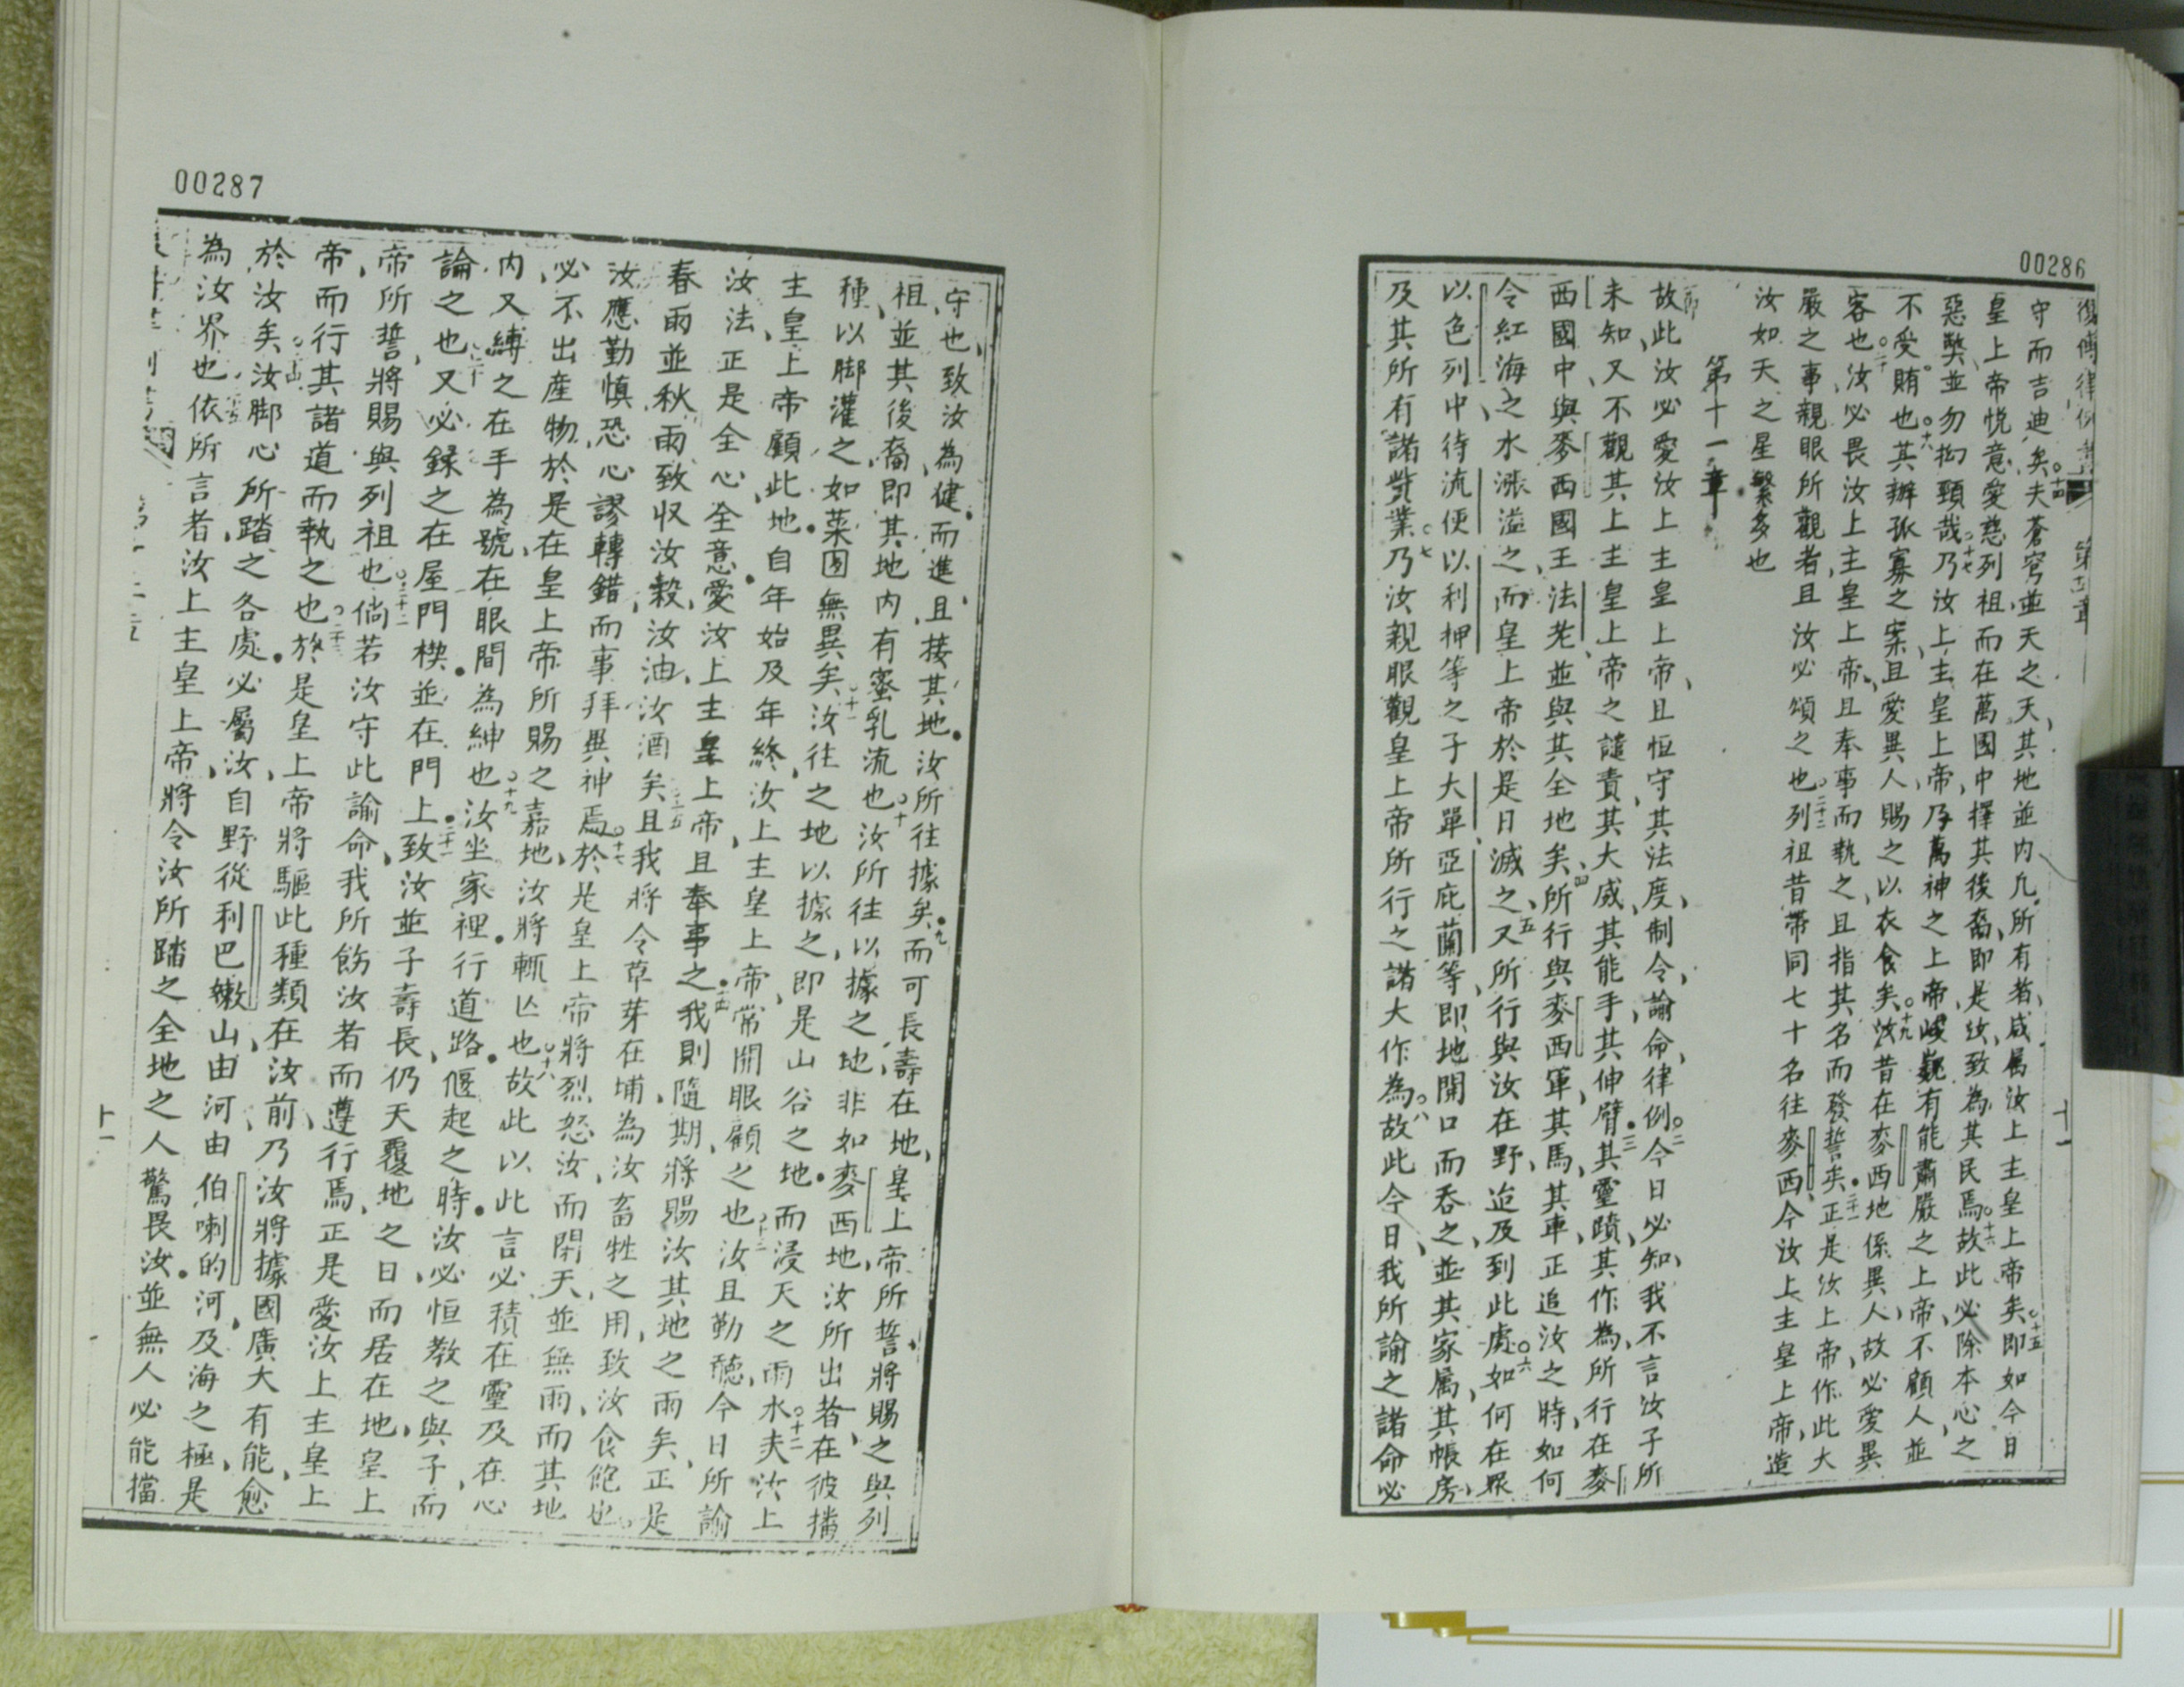 00286
復傳律例書 第十章 十一
守而吉迪矣○十四夫蒼穹並天之天其地並內凡所有者咸屬汝上主皇上帝矣○十五即如今日
皇上帝悅意愛慈列祖而在萬國中擇其後裔即是汝致為其民焉○十六故此必除本心之
惡獘並勿拗頸哉○十七乃汝上主皇上帝乃萬神之上帝峻巍有能肅嚴之上帝不顧人並
不受賄也○十八其辦孤寡之案且愛異人賜之以衣食矣○十九汝昔在麥西地係異人故必愛異
客也○二十汝必畏汝上主皇上帝且奉事而執之且指其名而發誓矣○二十一正是汝上帝作此大
嚴之事親眼所觀者且汝必頌之也○二十二列祖昔帶同七十名往麥西今汝上主皇上帝造
汝如天之星繁多也
第十一章
故此汝必愛汝上主皇上帝且恒守其法度制令諭命律例○二今日必知我不言汝子所
未知又不觀其上主皇上帝之譴責其大威其能手其伸臂○三其靈蹟其作為所行在麥
西國中與麥西國王法老並與其全地矣○四所行與麥西軍其馬其車正追汝之時如何
令紅海之水漲溢之而皇上帝於是日滅之○五又所行與汝在野迨及到此處○六如何在眾
以色列中待流便以利押等之子大單亞庇蘭等即地開口而吞之並其家屬其帳房
及其所有諸貲業○七乃汝親眼觀皇上帝所行之諸大作為○八故此今日我所諭之諸命必
00287
守也致汝為健而進且接其地汝所往據矣○九而可長壽在地皇上帝所誓將賜之與列
祖並其後裔即其地內有蜜乳流也○十汝所往以據之地非如麥西地汝所出者在彼播
種以脚灌之如菜園無異矣○十一汝往之地以據之即是山谷之地而浸天之雨水○十二夫汝上
主皇上帝顧此地自年始及年終汝上主皇上帝常開眼顧之也○十三汝且勤聽今日所諭
汝法正是全心全意愛汝上主皇上帝且奉事之○十四我則隨期將賜汝其地之雨矣正是
春雨並秋雨致収汝穀汝油汝酒矣○十五且我將令草芽在埔為汝畜牲之用致汝食飽也
汝應勤慎恐心謬轉錯而事拜異神焉○十七於是皇上帝將烈怒汝而閉天並無雨而其地
必不出產物於是在皇上帝所賜之嘉地汝將輒亾也○十八故此以此言必積在靈及在心
內又縛之在手為號在眼間為紳也○十九汝坐家裡行道路偃起之時汝必恒教之與子而
論之也○二十又必録之在屋門楔並在門上○二十一致汝並子壽長仍天覆地之日而居在地皇上
帝所誓將賜與列祖也○二十二倘若汝守此諭命我所飭汝者而遵行焉正是愛汝上主皇上
帝而行其諸道而執之也○二十三於是皇上帝將驅此種類在汝前乃汝將據國廣大有能愈
於汝矣○二十四汝脚心所踏之各處必屬汝自野從利巴嫩山由河由伯喇的河及海之極是
為汝界也○二十五依所言者汝上主皇上帝將令汝所踏之全地之人驚畏汝並無人必能擋
十一